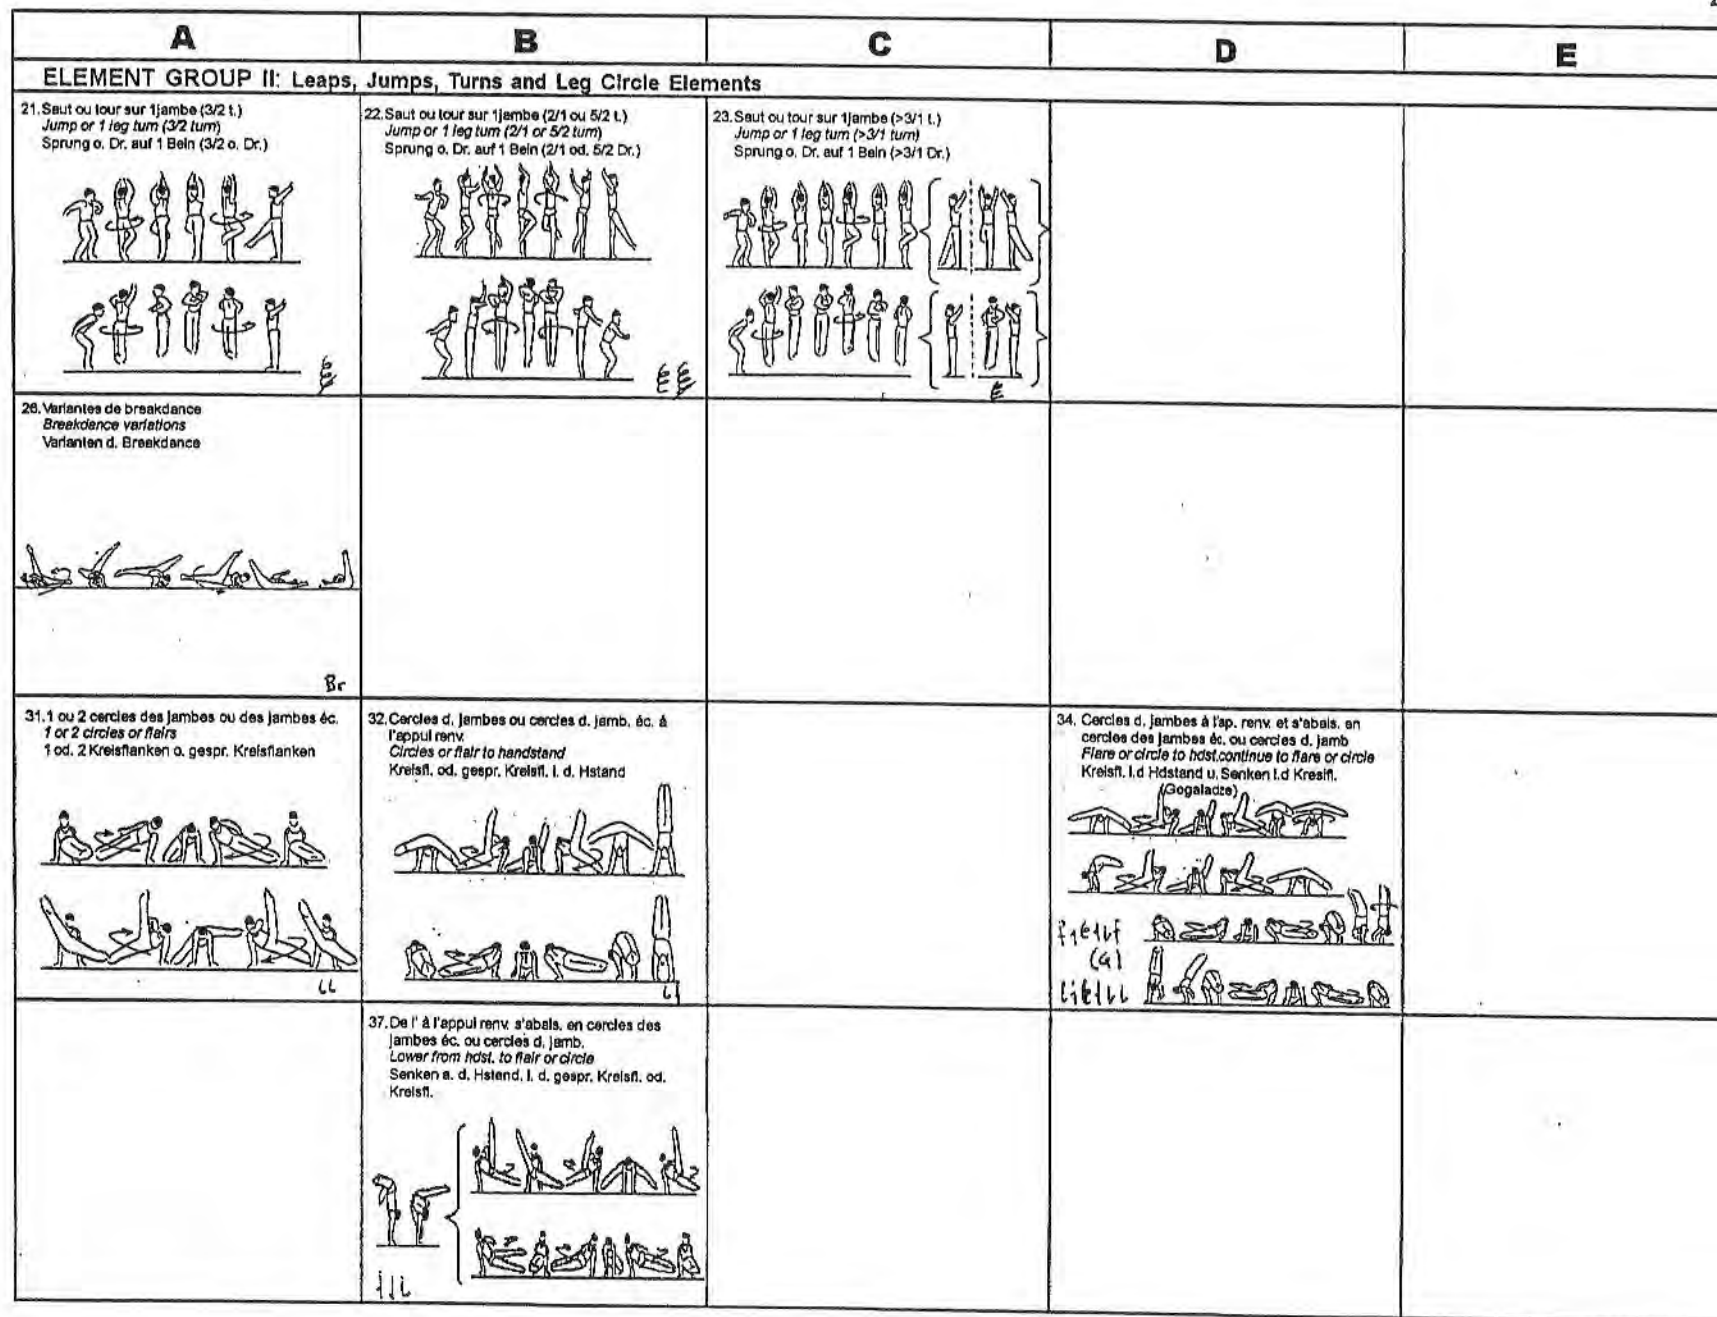 A
B
C
D
E
ELEMENT GROUP II: Leaps, Jumps, Turns and Leg Circle Elements
21. Saut ou tour sur 1jambe (3/2 t.)
Jump or 1 leg turn (3/2 turn)
Sprung o. Dr. auf 1 Bein (3/2 o. Dr.)
22. Saut ou tour sur 1jambe (2/1 ou 5/2 t.)
Jump or 1 leg turn (2/1 or 5/2 turn)
Sprung o. Dr. auf 1 Bein (2/1 od. 5/2 Dr.)
23. Saut ou tour sur 1jambe (>3/1 t.)
Jump or 1 leg turn (>3/1 turn)
Sprung o. Dr. auf 1 Bein (>3/1 Dr.)
26. Variantes de breakdance
Breakdance variations
Varianten d. Breakdance
Br
31. 1 ou 2 cercles des jambes ou des jambes éc.
1 or 2 circles or flairs
1 od. 2 Kreisflanken o. gespr. Kreisflanken
32. Cercles d. jambes ou cercles d. jamb. éc. à
l'appui renv.
Circles or flair to handstand
Kreisfl. od. gespr. Kreisfl. i. d. Hstand
34. Cercles d. jambes à l'ap. renv. et s'abais. en
cercles des jambes éc. ou cercles d. jamb
Flare or circle to hdst.continue to flare or circle
Kreisfl. i.d Hdstand u. Senken i.d Kresifl.
(Gogaladze)
(G)
37. De l' à l'appui renv. s'abais. en cercles des
jambes éc. ou cercles d. jamb.
Lower from hdst. to flair or circle
Senken a. d. Hstand. i. d. gespr. Kreisfl. od.
Kreisfl.